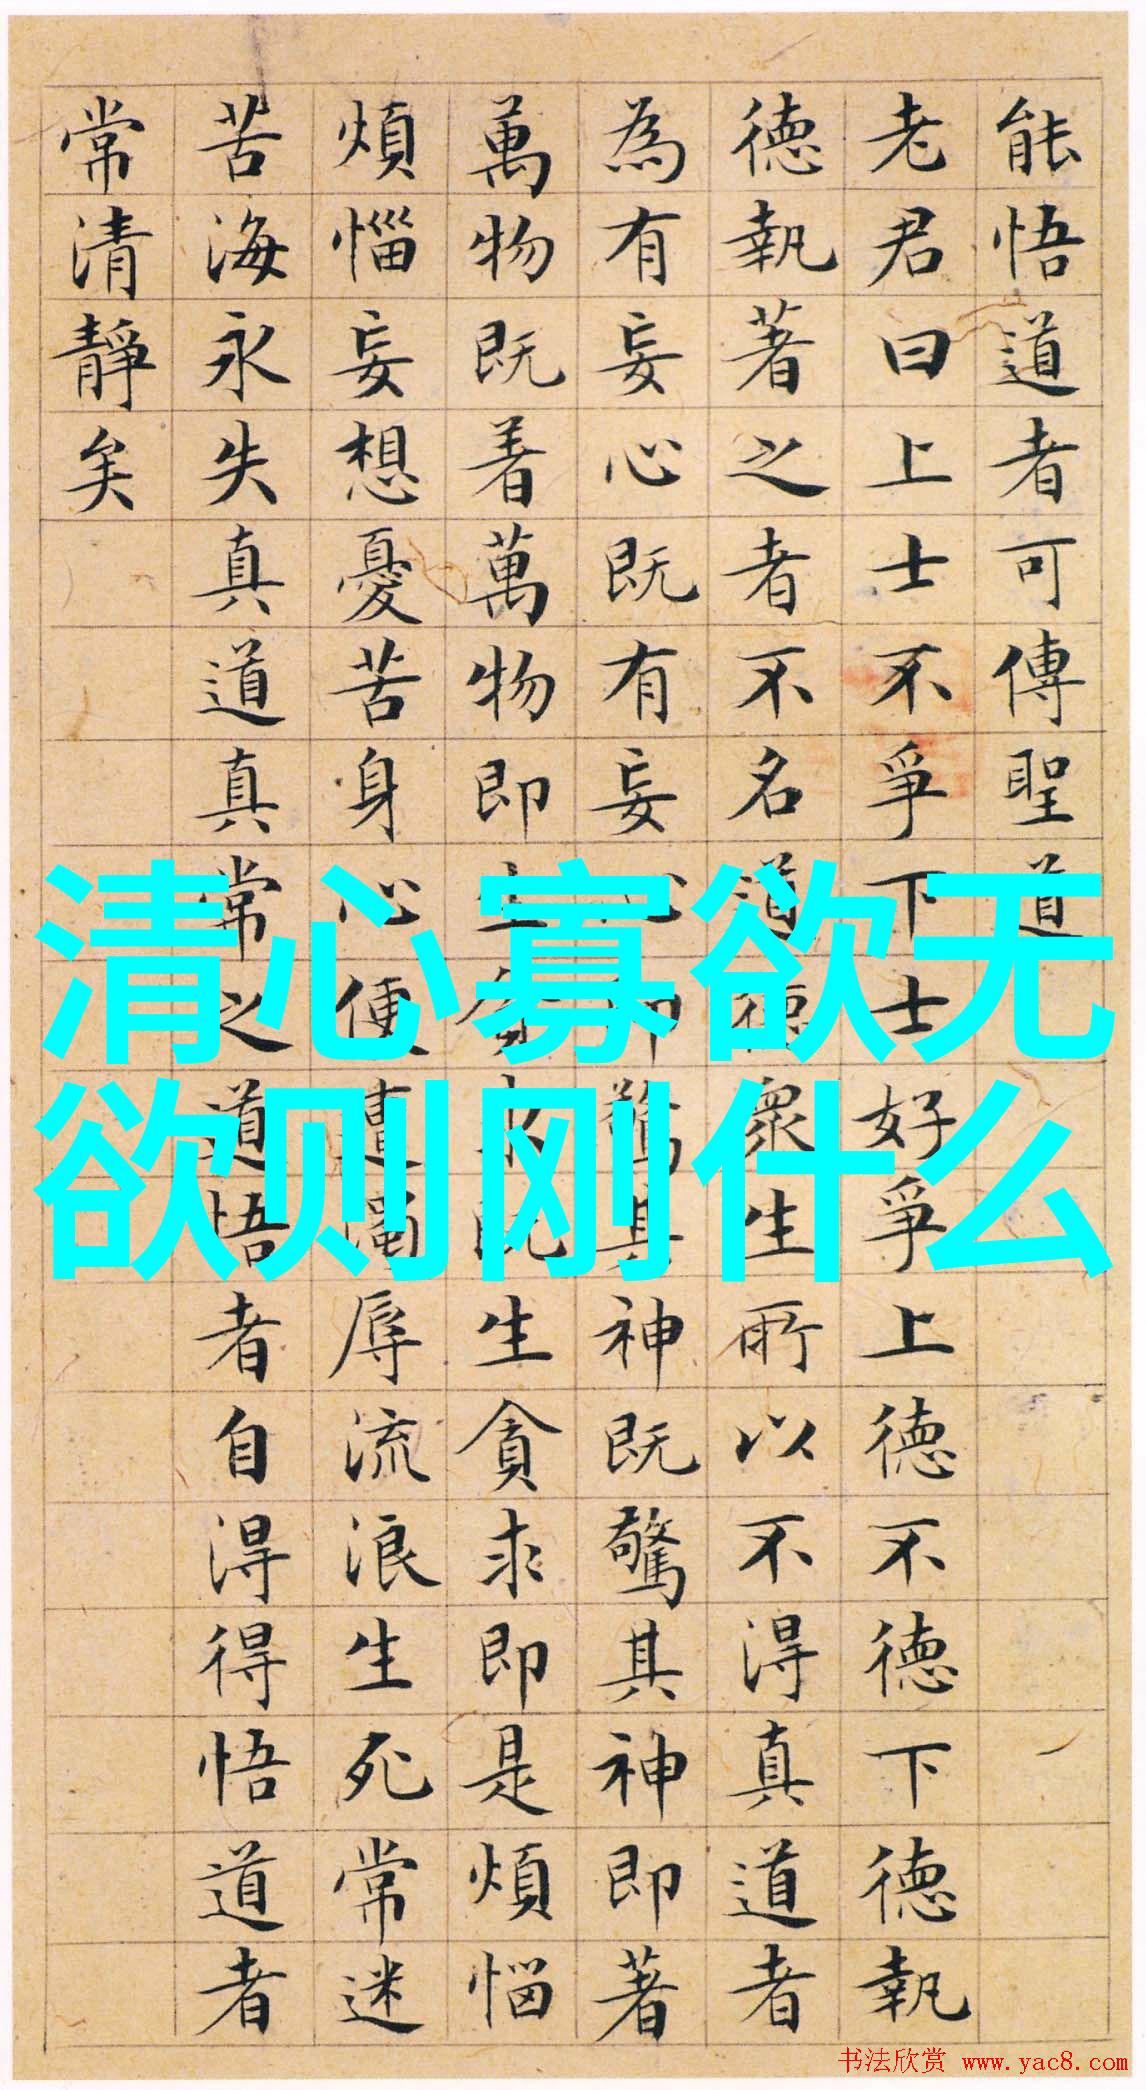 能悟道者可傳聖道
老君曰上士不爭下士好爭上德不德下德執
德執著之者不名道德眾生所以不淂真道者
為有妄心既有妄心即驚其神既驚其神即著
萬物既着萬物即生貪求既生貪求即是煩惱
煩惱妄想憂苦身心便遭濁辱流浪生死常迷
苦海永失真道真常之道悟者自淂得悟道者
常清靜矣
清心寡欲无
欲则刚什么
书法欣赏 www.yac8.com